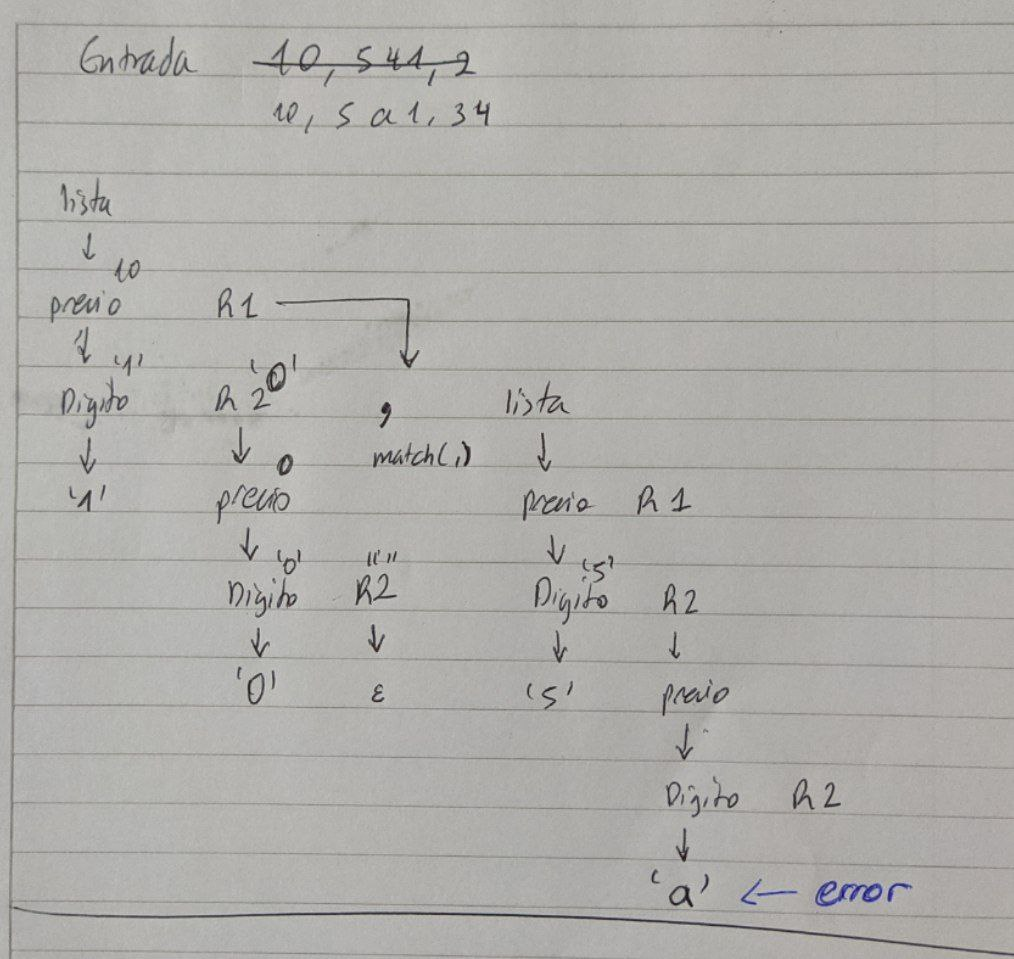 Entrada 10, 541, 2
10, 5 a 1, 34
lista
↓ 10
precio R1
↓ '1' '0'
Digito R2 , lista
↓ ↓ 0 match(,) ↓
'1' precio precio R1
↓ '0' "" ↓ '5'
Digito R2 Digito R2
↓ ↓ ↓ ↓
'0' ε '5' precio
↓
Digito R2
↓
'a' ← error